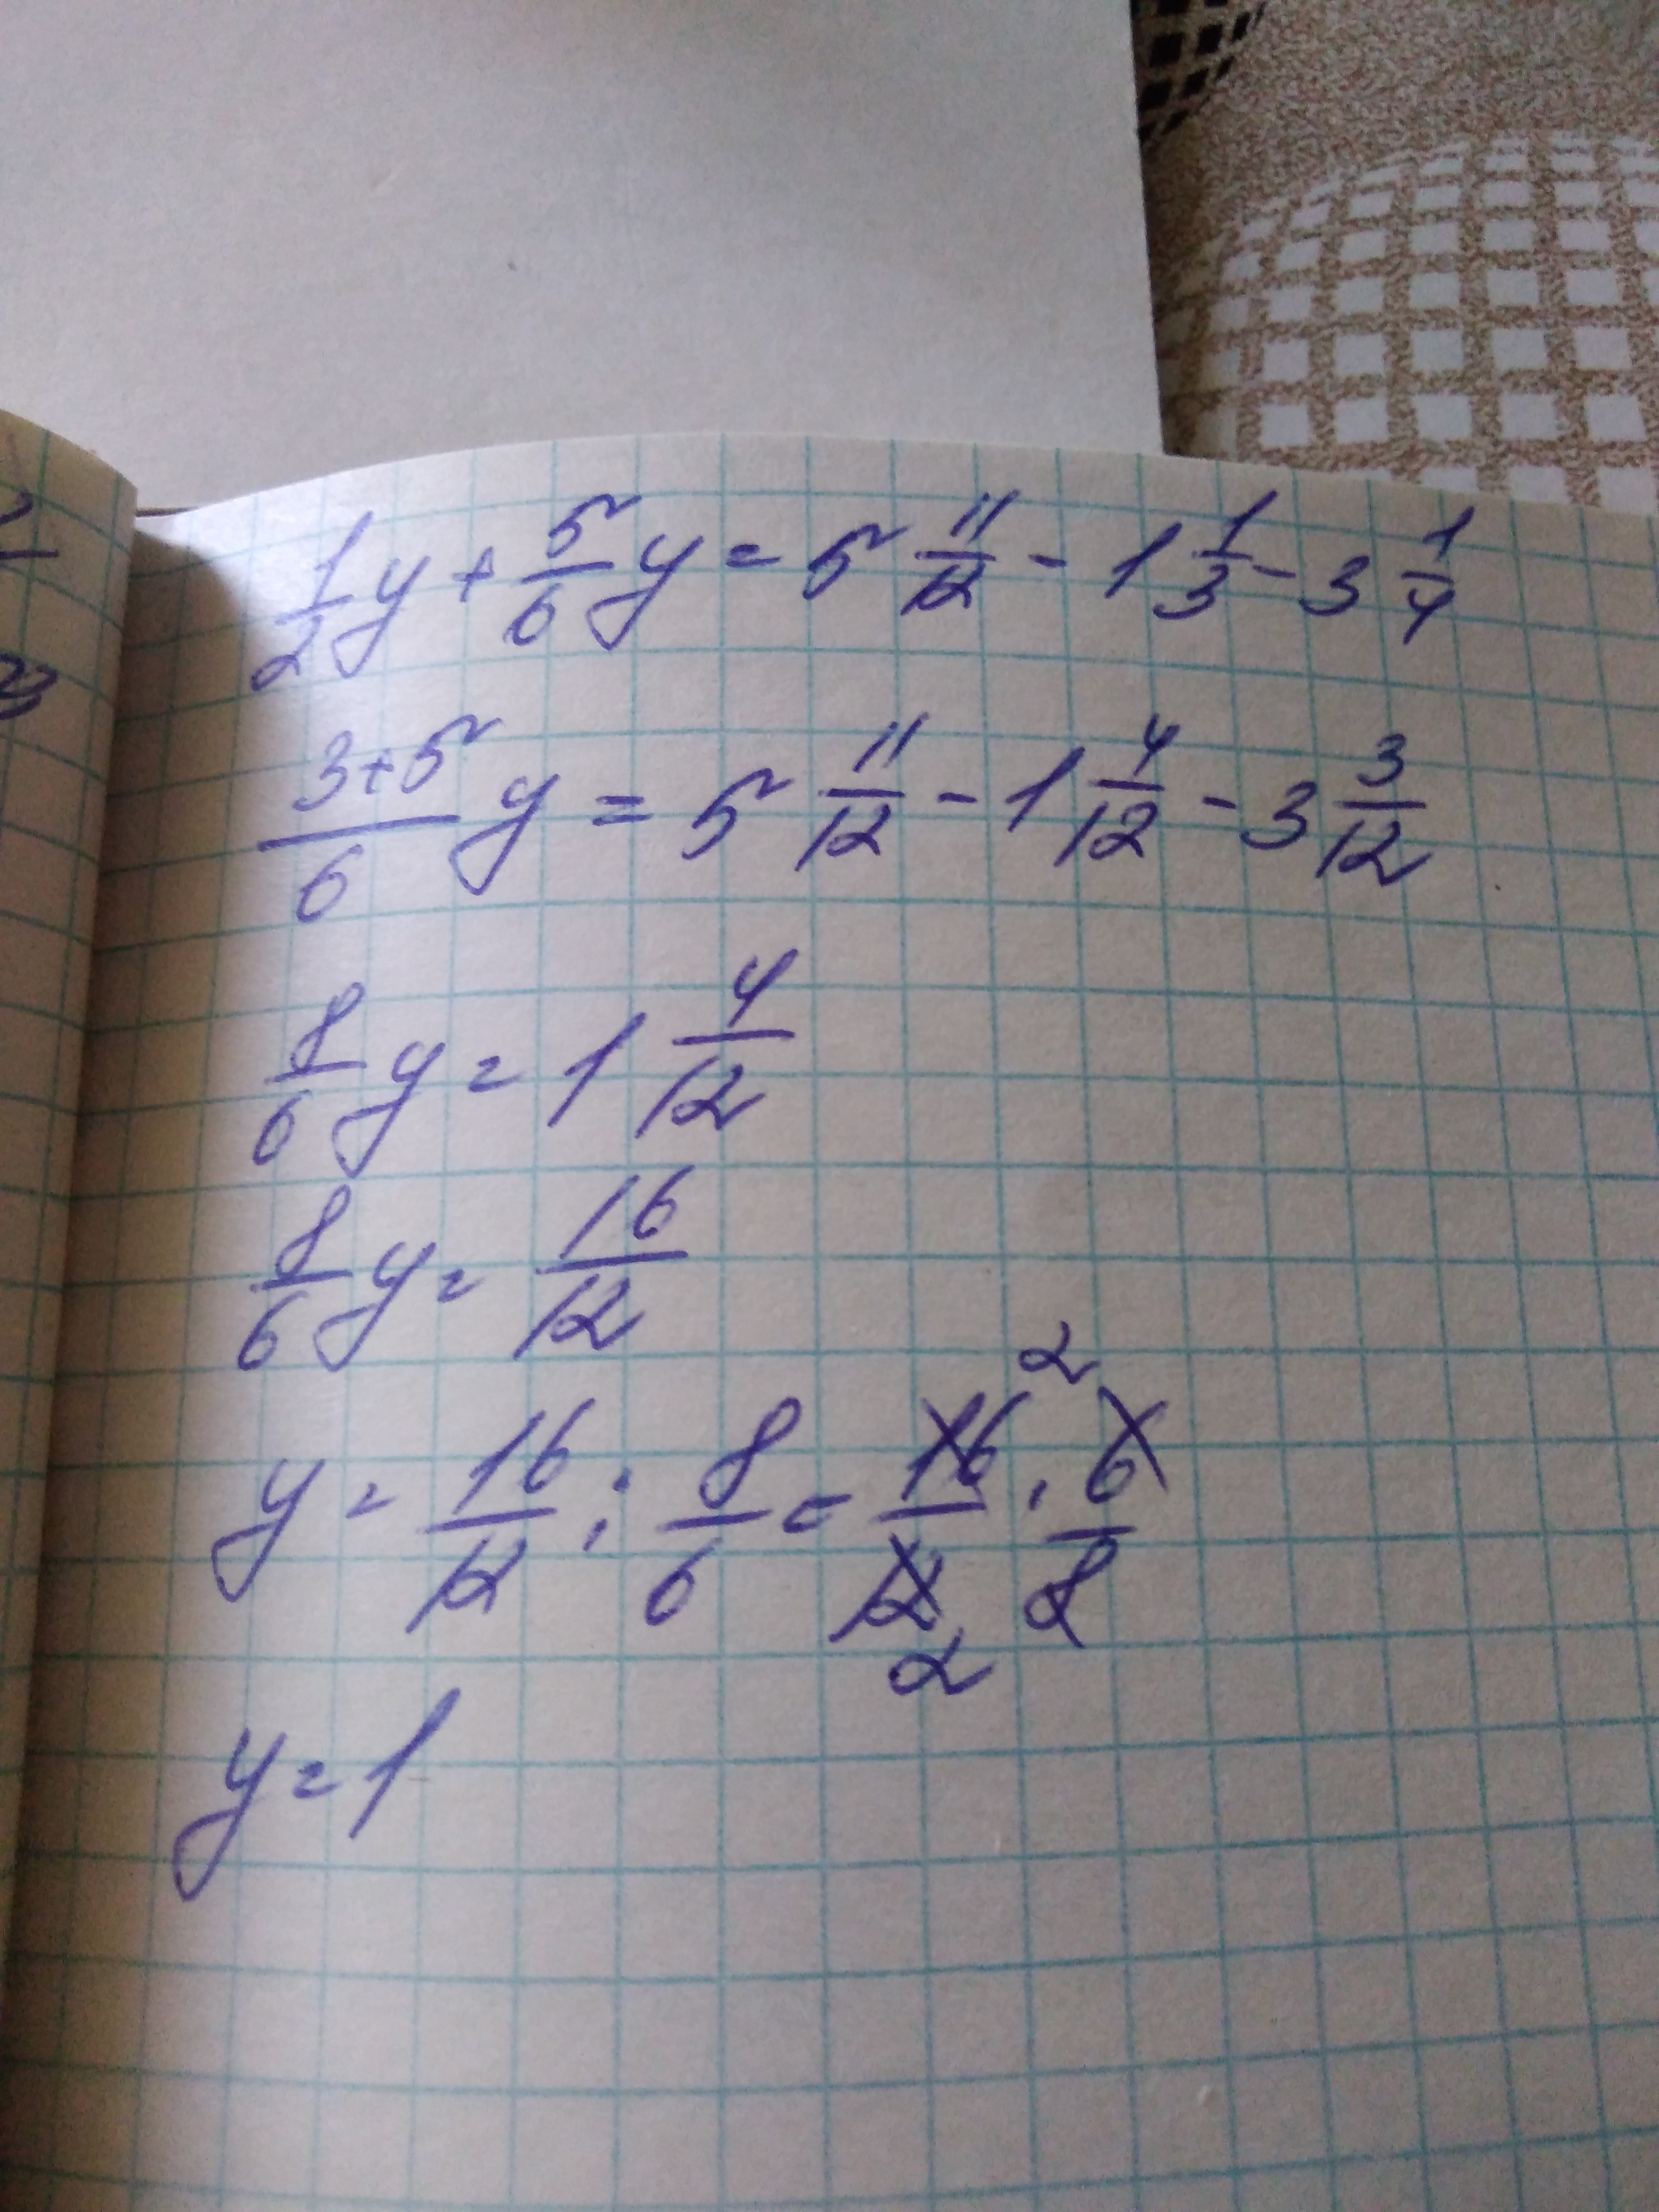 1/2 y + 5/6 y = 5 11/12 - 1 1/3 - 3 1/4
3+5/6 y = 5 11/12 - 1 4/12 - 3 3/12
8/6 y = 1 4/12
8/6 y = 16/12
y = 16/12 : 8/6 = 16/12 · 6/8
2
2
y = 1